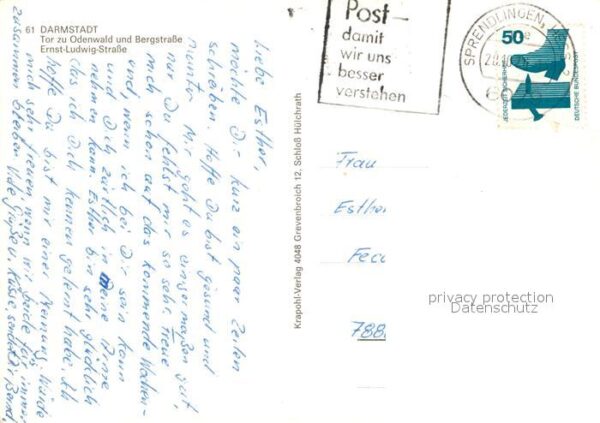 61 DARMSTADT
Tor zu Odenwald und Bergstraße
Ernst-Ludwig-Straße
Liebe Esther,
möchte Dir kurz ein paar Zeilen
schreiben. Hoffe Du bist gesund und
munter. Mir geht es einigermaßen gut,
nur Du fehlst mir so sehr. Freue
mich schon auf das kommende Wochen-
end, wenn ich bei Dir sein kann
und Dich zärtlich in meine Arme
nehmen kann. Esther bin sehr glücklich
das ich Dich kennen gelernt habe. Ich
hoffe Du bist mir einer Meinung. Würde
mich sehr freuen, wenn wir beide für immer
zusammen bleiben. Viele Grüße u. Küsse sendet Dir Bernd.
Krapohl-Verlag 4048 Grevenbroich 12, Schloß Hülchrath
Post-
damit
wir uns
besser
verstehen
SPRENDLINGEN,
50
JEDERZEIT SICHERHEIT
DEUTSCHE BUNDESPOST
Frau
Esther
Fecc
788
privacy protection
Datenschutz